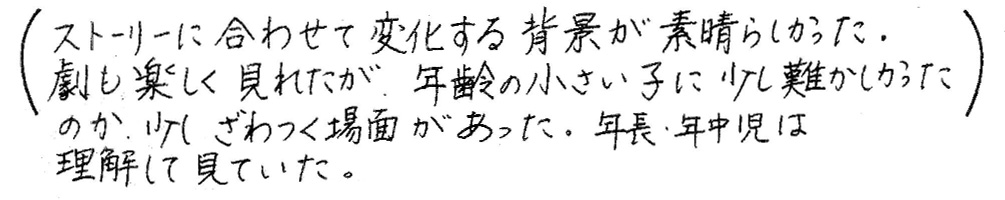 ストーリーに合わせて変化する背景が素晴らしかった.
劇も楽しく見れたが、年齢の小さい子に少し難かしかった
のか、少しざわつく場面があった。年長・年中児は
理解して見ていた。